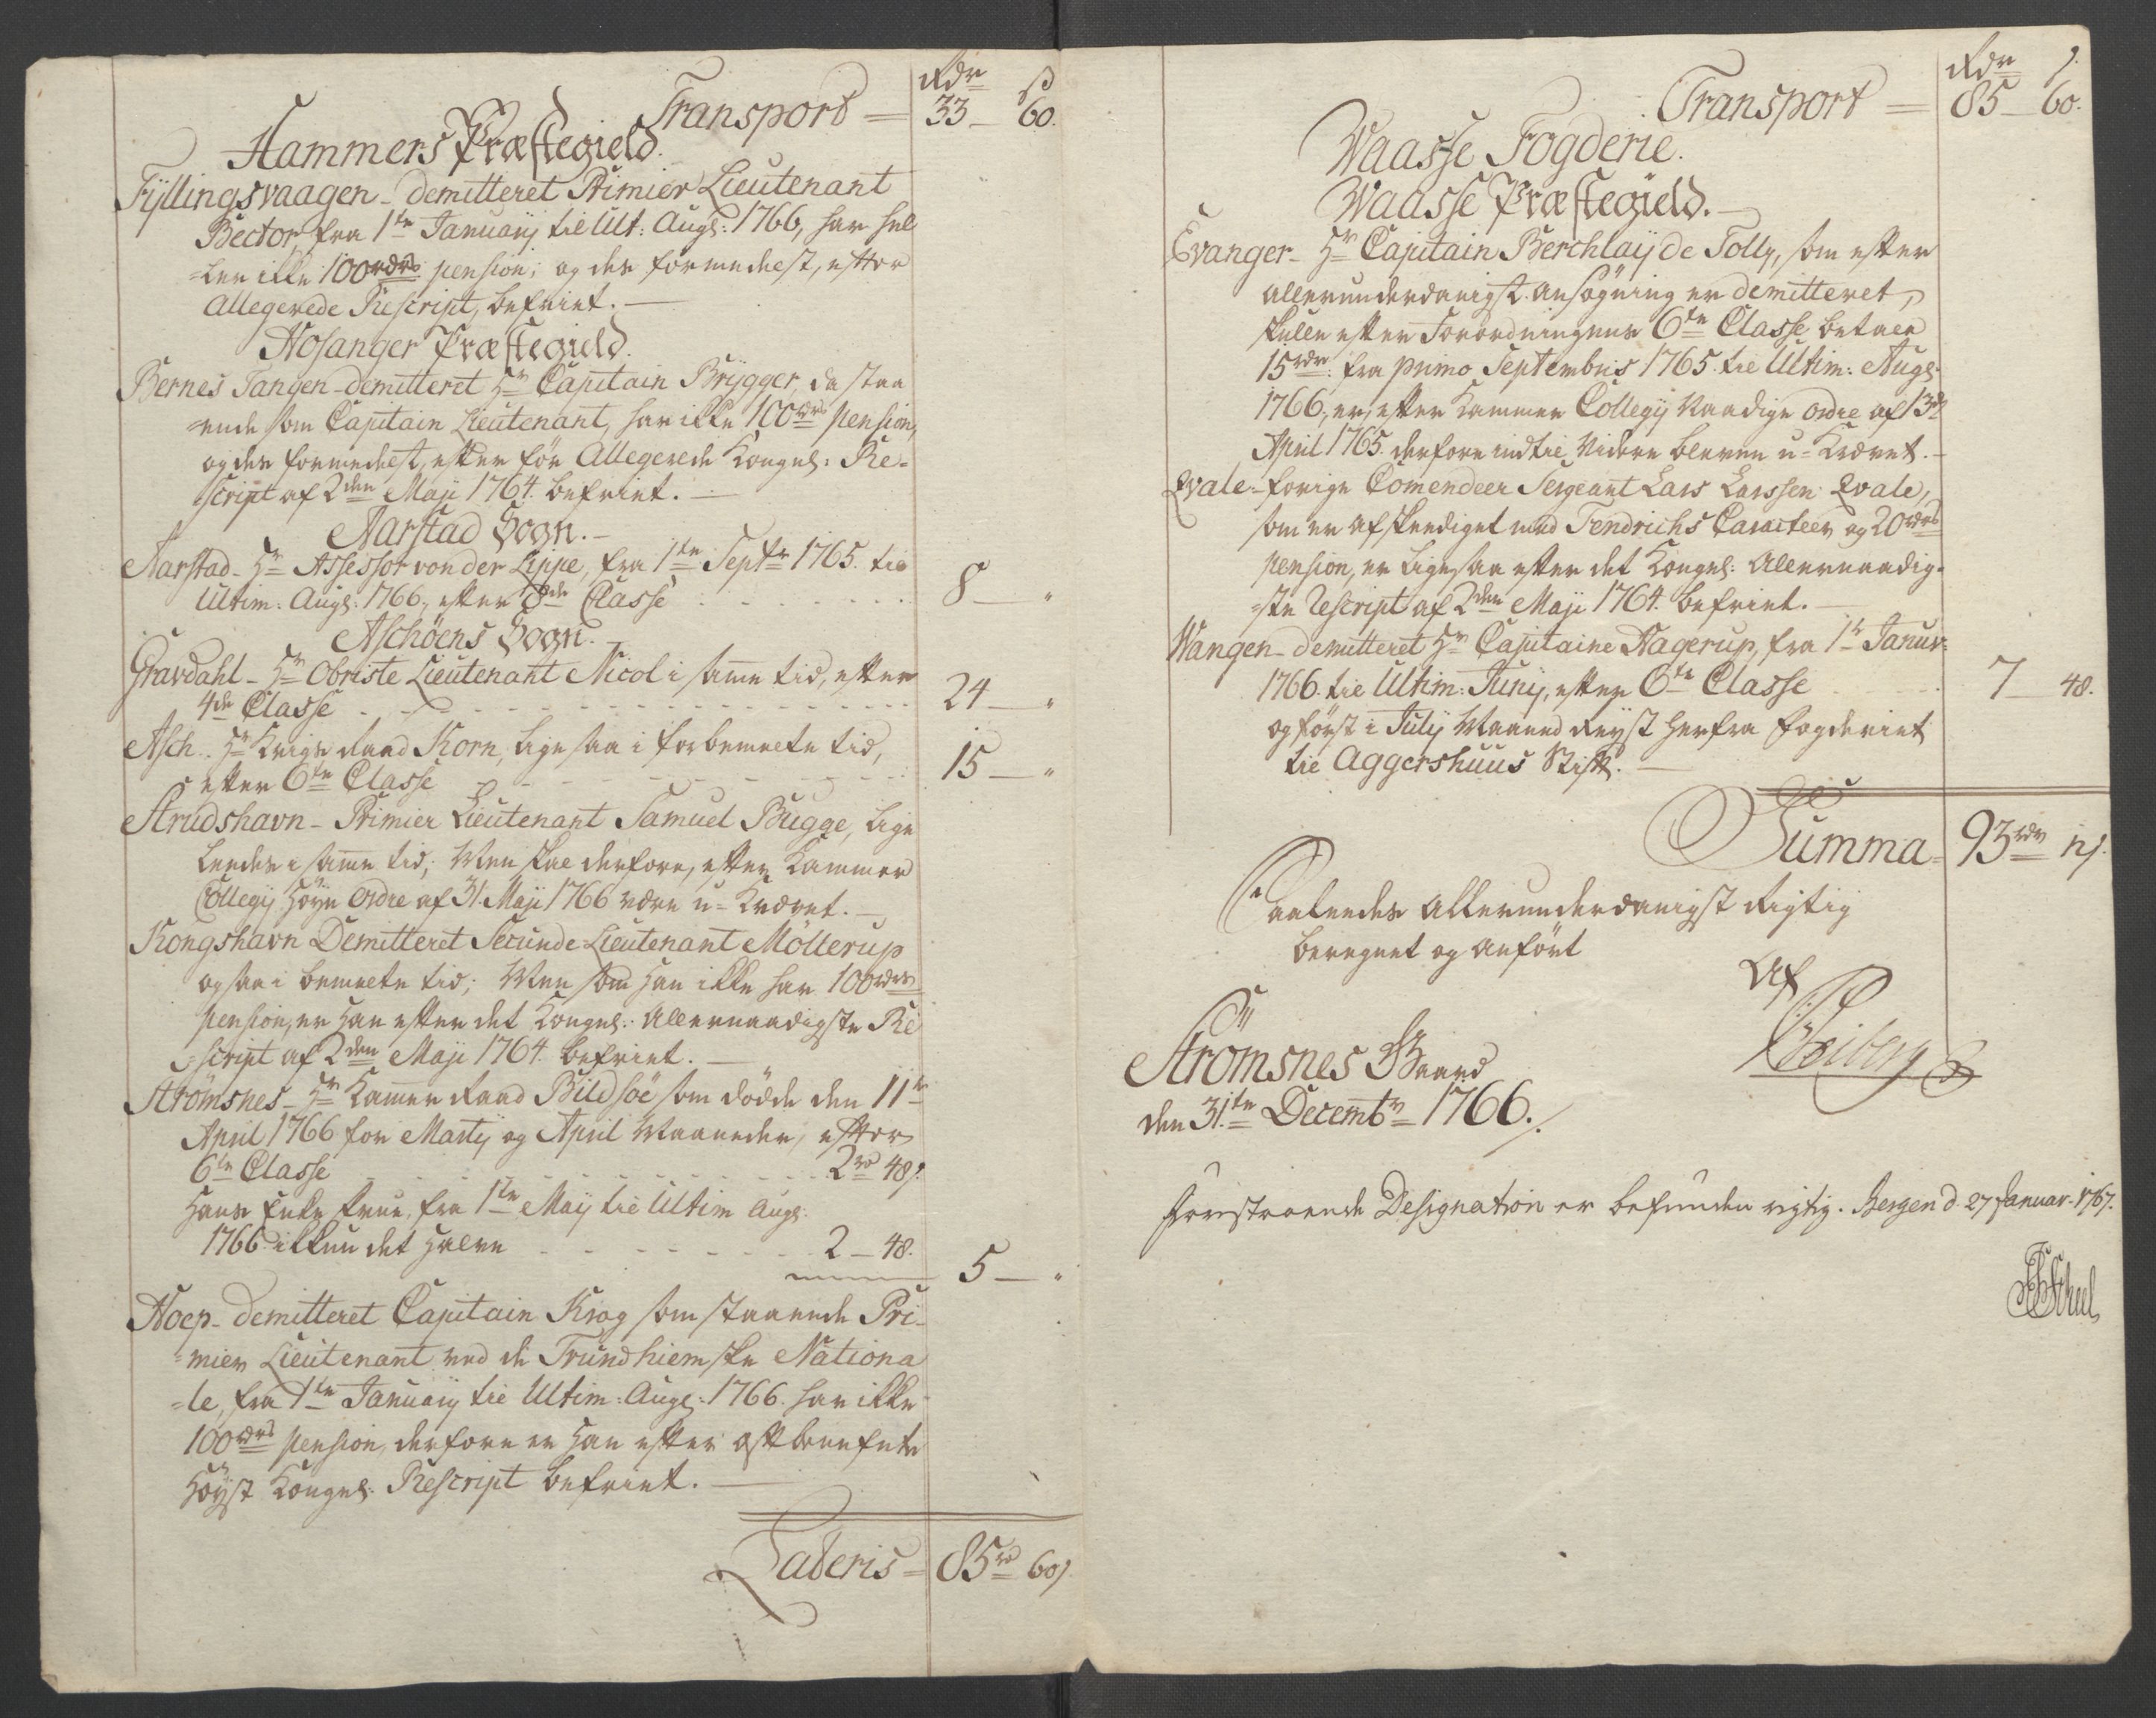 Rdr ß
Transport = 33 – 60.
Hammers Præstegield.
Fyllingsvaagen – demitteret Primier Lieutenant
Rector, fra 1te Januarij til Ult: Augs: 1766, har hel
=ler ikke 100rdrs pension; og der formedelst, efter
Allegerede Rescript, befriet. —
Hosanger Præstegield.
Bernes Tangen – demitteret Hr Capitain Brygger, da staa
=ende som Capitain Lieutenant, har ikke 100rdrs pension,
og der formedelst, efter før Allegerede Kongel: Re-
script af 2den Maji 1764. befriet. —
Aarstad Sogn. –
Aarstad – Hr Assessor von der Lippe, fra 1te Septr 1765. til
Ultim: Augs: 1766, efter 8de Classe 8 – "
Aschöens Sogn.
Gravdahl – Hr Obriste Lieutenant Nicol i samme tid, efter
4de Classe 24 – "
Asch – Hr Krigs Raad Korn, lige saa i forbemelte tid,
efter 6te Classe 15 – "
Strudshavn – Primier Lieutenant Samuel Bugge, lige
leedes i samme tid; Men skal derfore, efter Kammer
Collegij Høye Ordre af 31. Maji 1766 være u-Krævet. —
Kongshavn Demitteret Secunde Lieutenant Möllerup
ogsaa i bemelte tid; Men som Han ikke har 100rdrs
pension, er Han efter det Kongel: Allernaadigste Re
script af 2den Maji 1764. befriet. —
Strömsnes – Hr Kammer Raad Bildsöe som døde den 11te
April 1766 for Martij og April Maaneder, efter
6te Classe 2rd 48ß.
Hans Enke Frue, fra 1te Maij til Ultim Augs:
1766 ikkun det Halve 2 – 48.
5 – "
Hoep – demitteret Capitain Krog som staaende Pri-
=mier Lieutenant ved de Trundhiemske Nationa
=le, fra 1te Januarij til Ultim: Augs: 1766. har ikke
100rdrs pension, derfore er Han efter oftbemelte
Høyst Kongel: Rescript befriet. —
Lateris = 85rd 60ß.
Rdr ß.
Transport = 85 – 60.
Waasse Fogderie.
Waasse Præstegield. –
Evanger – Hr Capitain Berchlaij de Tolly, som efter
allerunderdanigst ansøgning er demitteret,
skulle efter Forordningens 6te Classe betale
15rdr: fra primo Septembris 1765. til Ultim: Augs:
1766, er, efter Kammer Collegij Naadige Ordre af 13de
April 1765. derfore indtil Videre bleven u-Krævet. –
Qvale – forige Comendeer Sergeant Lars Larssen Qvale,
som er afskediget med Fendrichs Caracteer og 20rdrs
pension, er ligesaa efter det Kongel: Allernaadig-
=ste Rescript af 2den Maji 1764. befriet. —
Wangen – demitteret Hr Capitaine Hagerup, fra 1te Januar:
1766. til Ultim: Junij, efter 6te Classe 7 – 48.
og først i Julij Maaned Reyst herfra Fogderiet
til Aggershuus Stift. —
Summa = 93rdr 12ß.
Saaledes Allerunderdanigst Rigtig
beregnet og anført
Af
Strömsnes Gaard
den 31.te Decembr 1766./. Heiberg
Forestaaende Designation er befunden rigtig. Bergen d. 27 Januar. 1767.